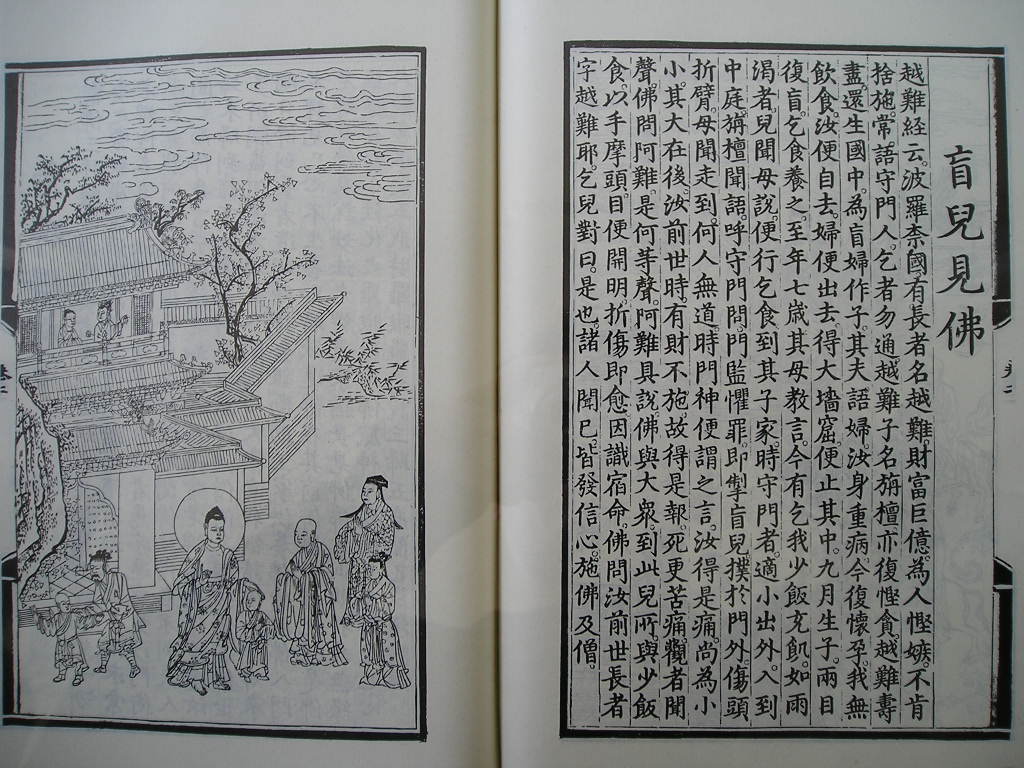 盲兒見佛
越難經云。波羅柰國。有長者名越難。財富巨億。為人慳嫉。不肯
捨施。常語守門人。乞者勿通。越難子名旃檀。亦復慳貪。越難壽
盡。還生國中。為盲婦作子。其夫語婦。汝身重病。今復懷孕。我無
飲食。汝便自去。婦便出去。得大墻窟。便止其中。九月生子。兩目
復盲。乞食養之。至年七歲。其母教言。今有乞我少飯充飢。如雨
渴者。兒聞母說。便行乞食。到其子家。時守門者。適小出外。入到
中庭。旃檀聞語。呼守門問。門監懼罪。即掣盲兒。撲於門外。傷頭
折臂。母聞走到。何人無道。時門神便謂之言。汝得是痛。尚為小
小。其大在後。汝前世時。有財不施。故得是報。死更苦痛。觀者聞
聲。佛問阿難。是何等聲。阿難具說。佛與大眾。到此兒所。與少飯
食。以手摩頭。目便開明。折傷即愈。因識宿命。佛問汝前世長者
字越難耶。乞兒對曰。是也。諸人聞已。皆發信心。施佛及僧。